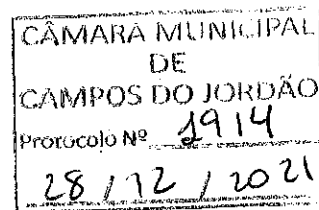 CÂMARA MUNICIPAL
DE
CAMPOS DO JORDÃO
Protocolo Nº 1914
28 / 12 / 2021